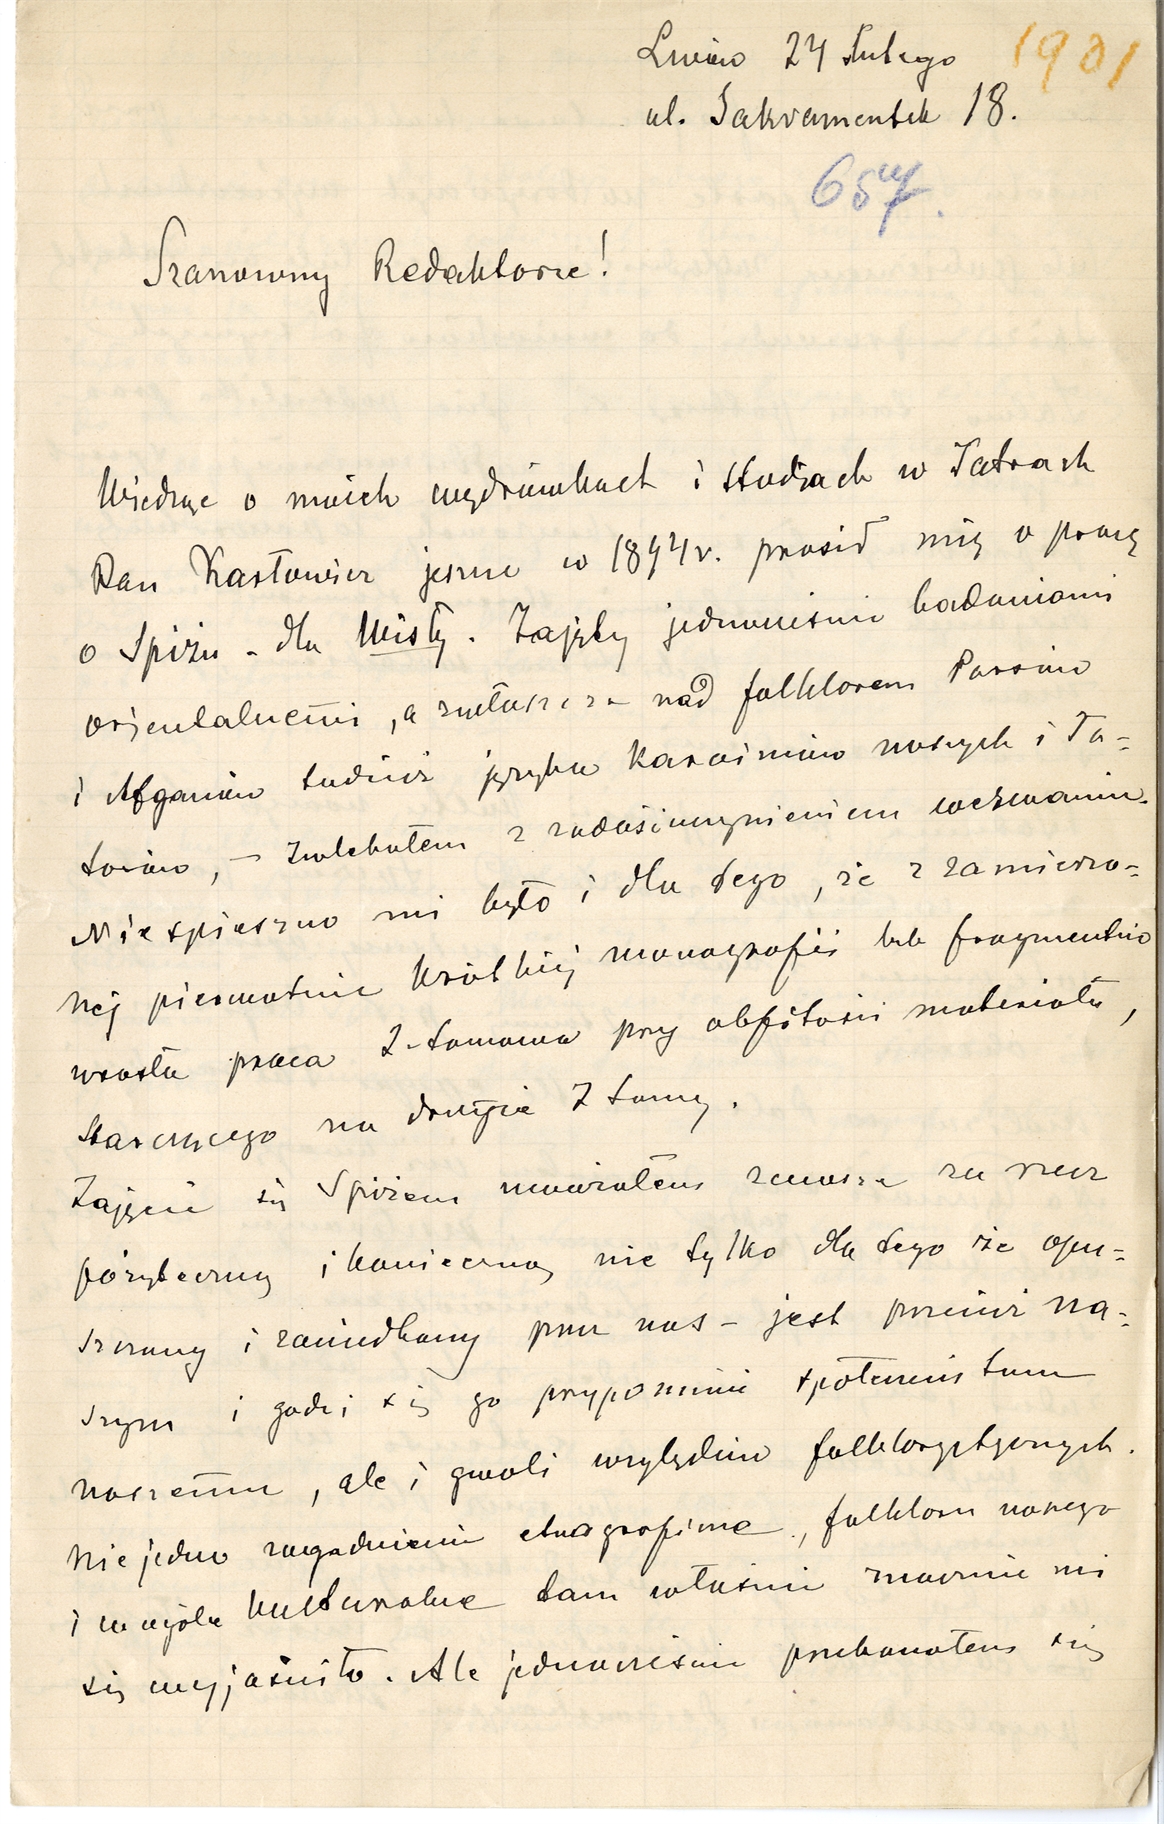 Lwów 24 Lutego 1901
ul. Sakramentek 18.
657.
Szanowny Redaktorze!
Wiedząc o moich wędrówkach i studiach w Tatrach
Pan Karłowicz jeszcze w 1894 r. prosił mię o pracę
o Spiżu - dla Wisły. Zajęty jednocześnie badaniami
orjentalnemi, a zwłaszcza nad folklorem Parsów
i Afganów tudzież języka Karaimów naszych i Ta-
tarów, - zwlekałem z zadośćuczynieniem wezwaniu.
Niespieszno mi było i dla tego, że z zamierzo-
nej pierwotnie krótkiej monografii lub fragmentów
wzrosła praca 2-tomowa przy obfitości materiału,
starczącego na drugie 2 tomy.
Zajęcie się Spiżem uważałem zawsze za rzecz
pożyteczną i konieczną nie tylko dla tego że opu-
szczony i zaniedbany przez nas - jest przecież na-
szym i godzi się go przypomnieć społeczeństwu
naszemu, ale i gwoli względów folklorystycznych.
Niejedno zagadnienie etnograficzne, folkloru naszego
i w ogóle kulturalne tam właśnie znacznie mi
się wyjaśniło. Ale jednocześnie przekonałem się